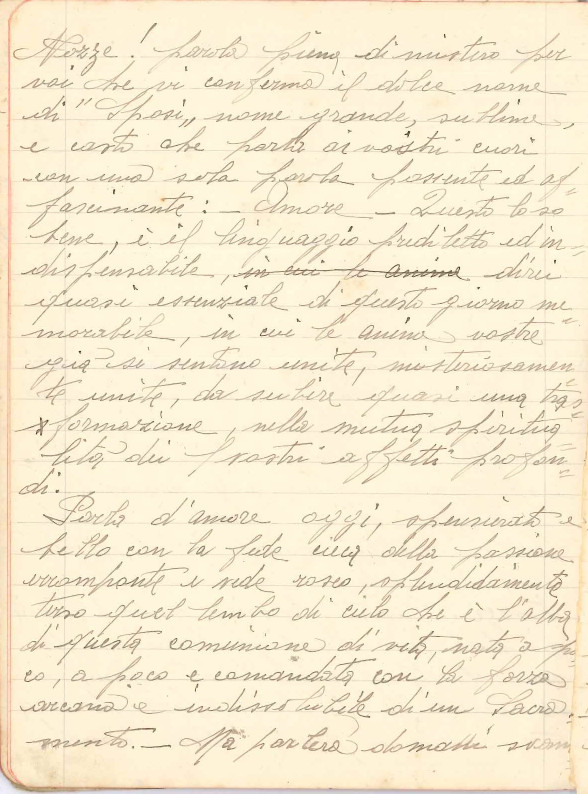 Nozze! parola piena di mistero per
voi che vi conferma il dolce nome
di "Sposi„ nome grande, sublime,
e casto che parla ai vostri cuori
con una sola parola possente ed af=
fascinante: - Amore - Questo lo so
bene, è il linguaggio prediletto ed in=
dispensabile, in cui le anime direi
quasi essenziale di questo giorno me
morabile, in cui le anime vostre
già si sentono unite, misteriosamen=
te unite, da subire quasi una tras=
formazione, nella mutua spiritua
lità dei vostri affetti profon=
di.
Parla d'amore oggi, spensierato e
bello con la fede cieca della passione
irrompente e vede roseo, splendidamente
terso quel lembo di cielo che è l'alba
di questa comunione di vita, nata a po=
co, a poco e comandata con la forza
arcana e indissolubile di un Sacra=
mento. - Ma parlerà domani